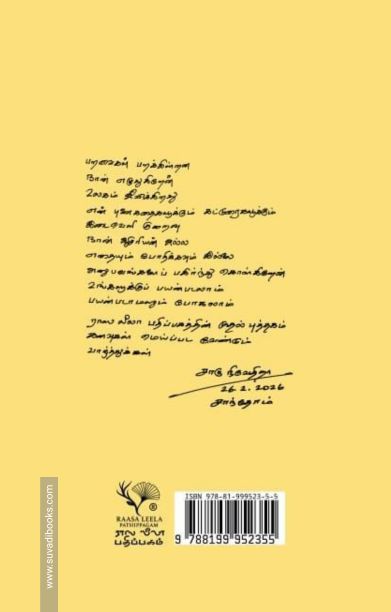 பறவைகள் பறக்கின்றன
நான் எழுதுகிறேன்
உலகம் இருக்கிறது
என் புனைகதைகளுக்கும் கட்டுரைகளுக்கும்
இடைவெளி குறைவு
நான் ஆசிரியன் அல்ல
எதையும் போதிக்கவும் இல்லை
அனுபவங்களைப் பகிர்ந்து கொள்கிறேன்
உங்களுக்குப் பயன்படலாம்
பயன்படாமலும் போகலாம்
ராஸ லீலா பதிப்பகத்தின் முதல் புத்தகம்
கனவுகள் மெய்ப்பட வேண்டும்
வாழ்த்துக்கள்
சாரு நிவேதிதா
26.2.2026
சாந்தோம்
RAASA LEELA
PATHIPPAGAM
ராஸ லீலா
பதிப்பகம்
ISBN 978-81-999523-5-5
9 788199 952355
www.suvadibooks.com